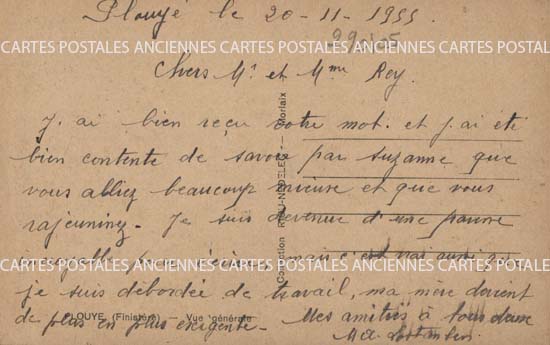 Plouyé le 20-11-1955.
CARTES POSTALES ANCIENNES CARTES POSTALES ANCIENNES CARTES POSTALES ANCIENNES
Chers Mr et Mme Rey.
J. ai bien reçu votre mot. et j. ai été
bien contente de savoir par suzanne que
vous alliez beaucoup mieuse et que vous
rajeuninez. Je suis devenue d'une paurre
pour mais c'est vrai aussi que
CARTES POSTALES ANCIENNES CARTES POSTALES ANCIENNES CARTES POSTALES ANCIENNES
je suis débordée de travail, ma mère devient
de plus en plus exigente. Mes amitiés à tous deux
PLOUYE (Finistère) — Vue générale
Collection — Morlaix